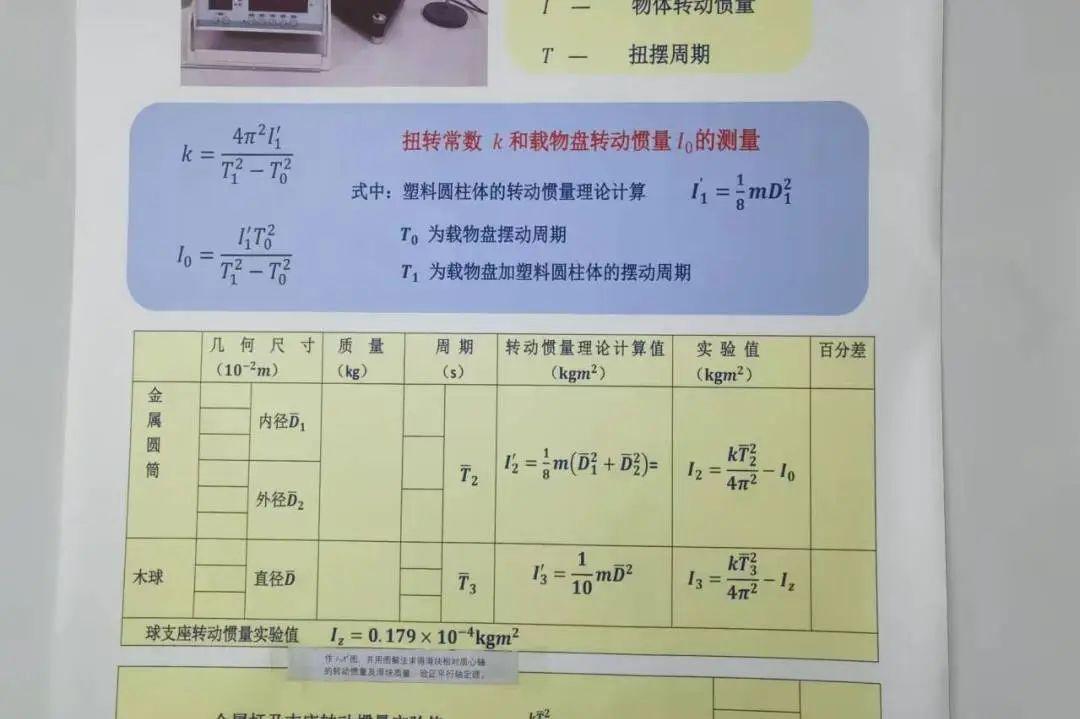 I — 物体转动惯量
T — 扭摆周期
扭转常数 k 和载物盘转动惯量 I₀的测量
k = 4π²I₁′ / (T₁² − T₀²)
式中：塑料圆柱体的转动惯量理论计算 I₁′ = 1/8 mD₁²
I₀ = I₁′T₀² / (T₁² − T₀²)
T₀ 为载物盘摆动周期
T₁ 为载物盘加塑料圆柱体的摆动周期
几何尺寸（10⁻²m） 质量（kg） 周期（s） 转动惯量理论计算值（kgm²） 实验值（kgm²） 百分差
金属圆筒 内径D̄₁ 外径D̄₂ T̄₂ I₂′ = 1/8 m(D̄₁² + D̄₂²)= I₂ = kT̄₂² / 4π² − I₀
木球 直径D̄ T̄₃ I₃′ = 1/10 mD̄² I₃ = kT̄₃² / 4π² − I_z
球支座转动惯量实验值 I_z = 0.179 × 10⁻⁴kgm²
图，并用图解法求得滑块相对质心轴
的转动惯量及滑块质量，验证平行轴定理。